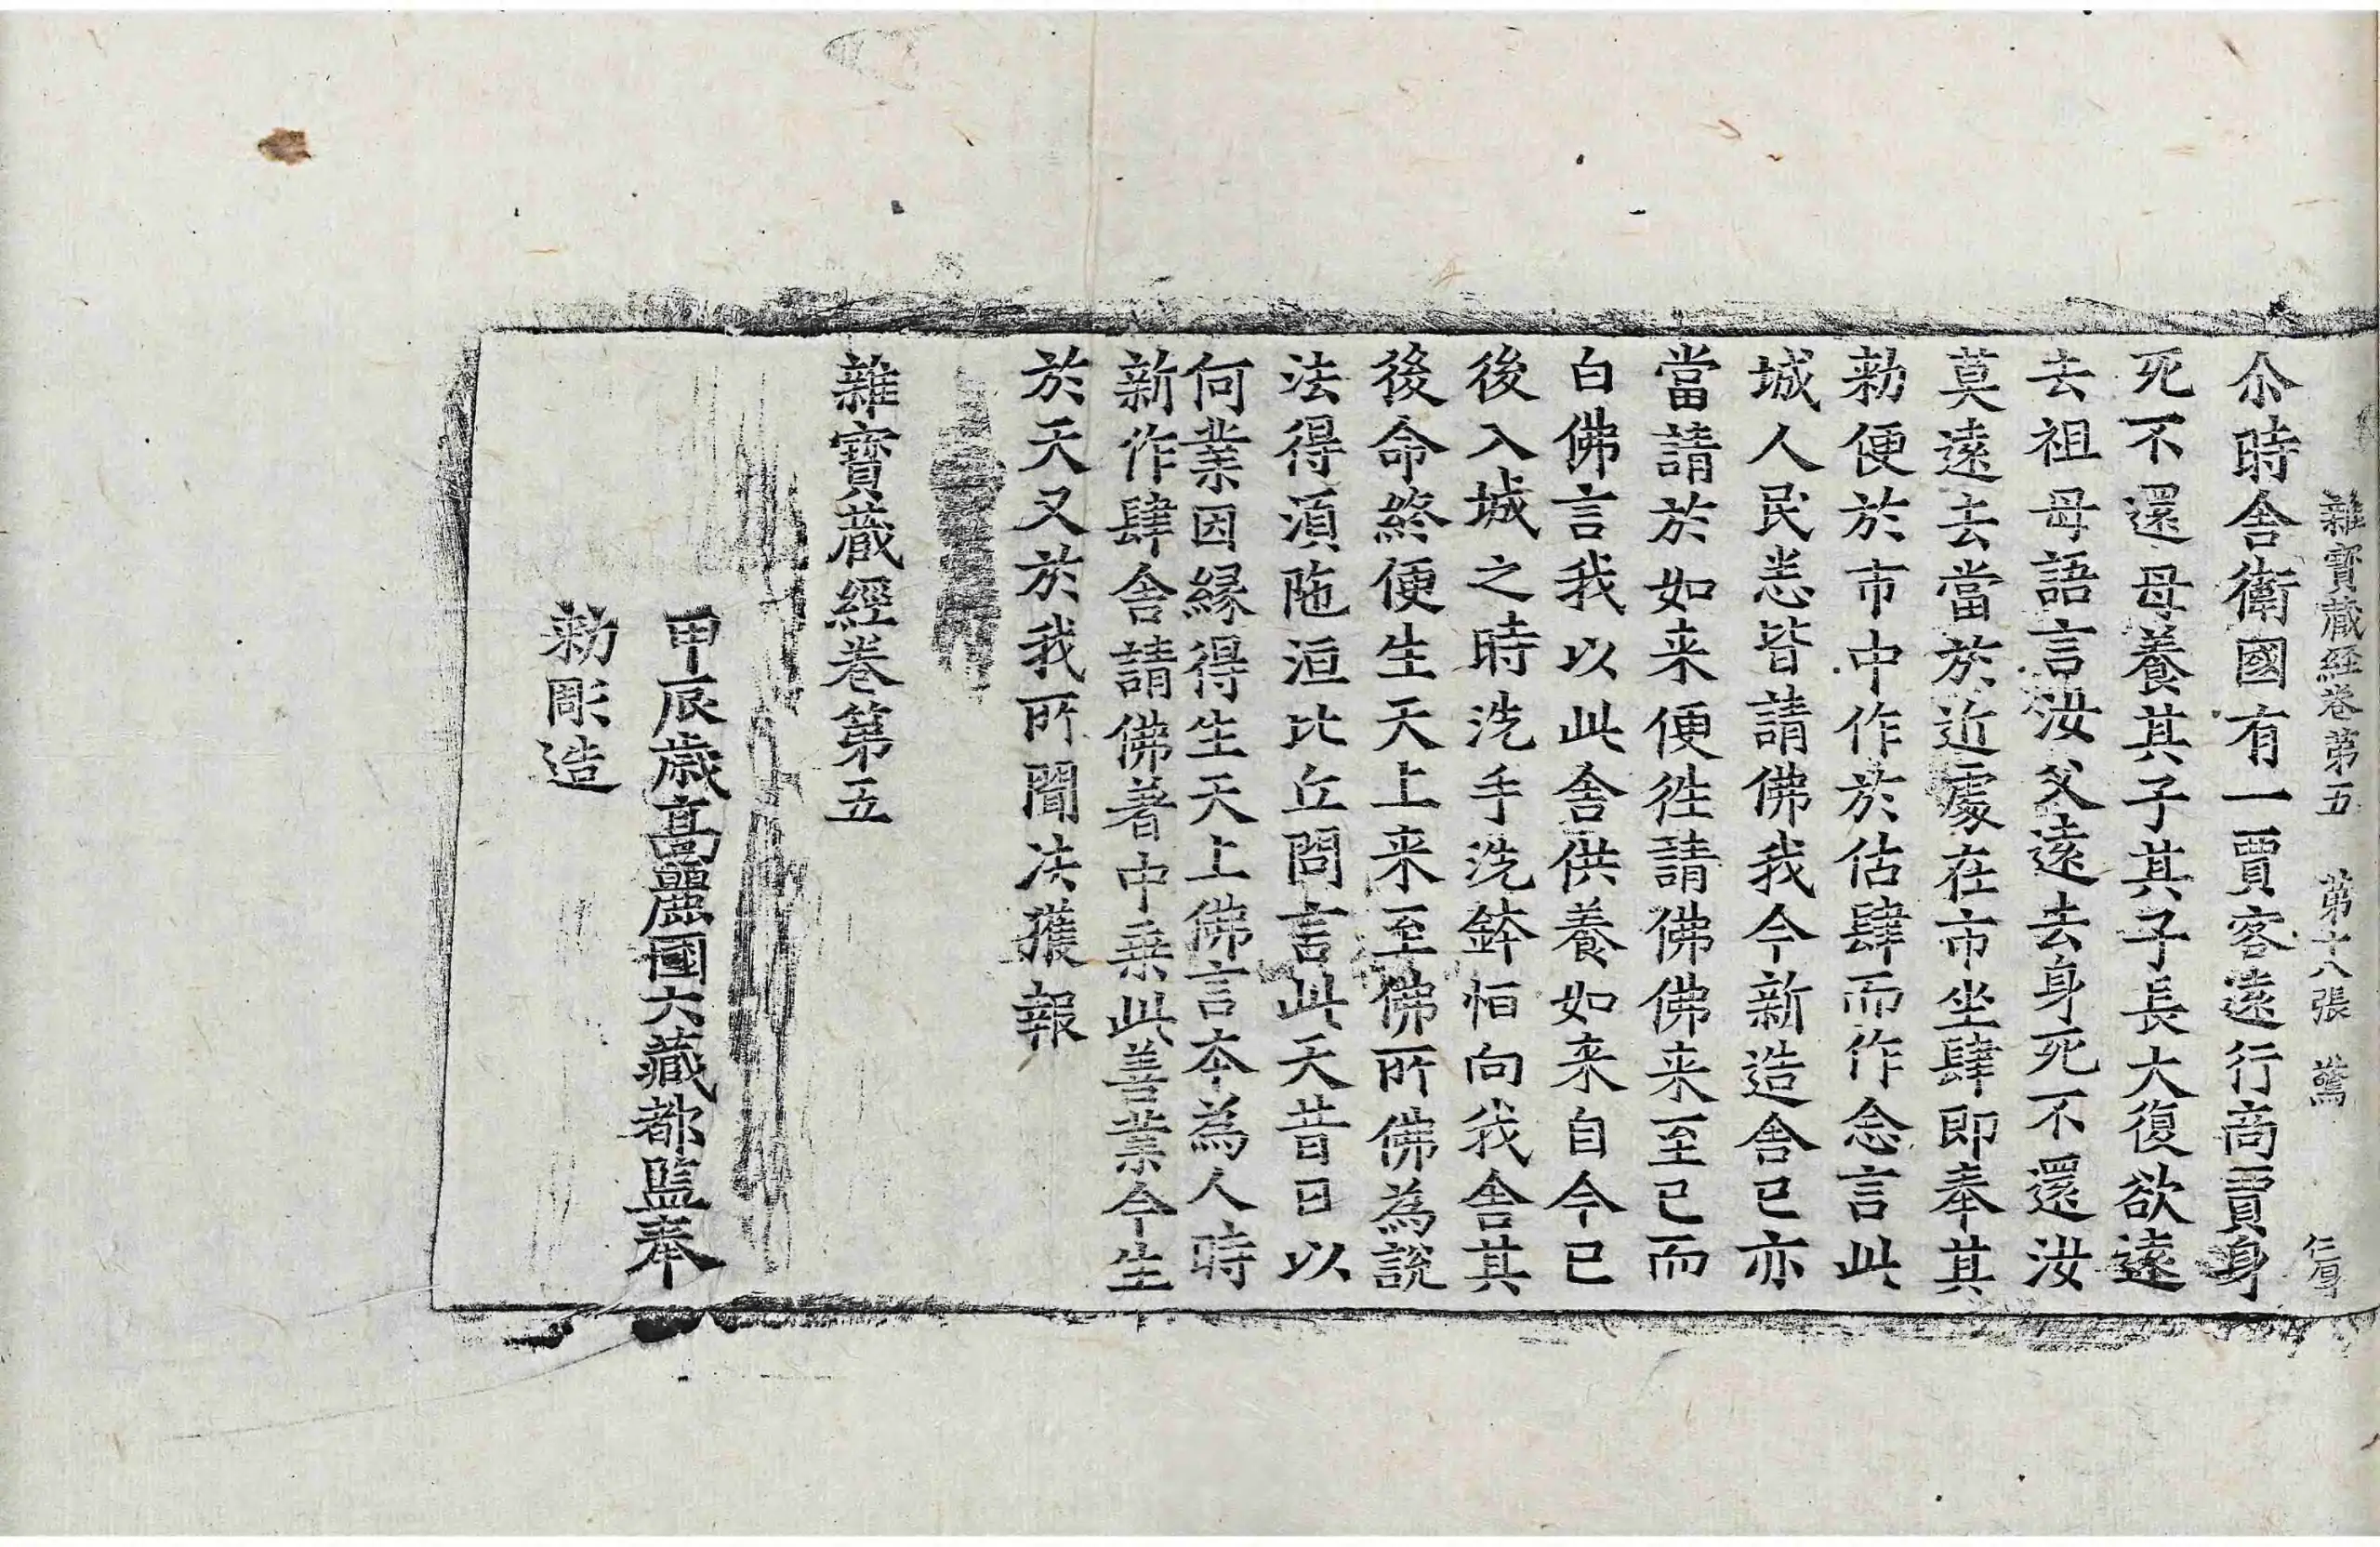 雜寶蔵経卷第五 第十八張 驚 仁身
尒時舎衛國有一賈客遠行商賈身
死不還母養其子其子長大復欲遠
去祖母語言汝父遠去身死不還汝
莫遠去當於近處在市坐肆即奉其
勑便於市中作於估肆而作念言此
城人民悉皆請佛我今新造舎已亦
當請於如来便徃請佛佛来至已而
白佛言我以此舎供養如来自今已
後入城之時洗手洗鉢恒向我舎其
後命終便生天上来至佛所佛為說
法得湏陁洹比丘問言此天昔日以
何業因縁得生天上佛言本為人時
新作肆舎請佛著中乗此善業今生
於天又於我所聞法獲報
雜寶蔵經卷第五
甲辰歳髙麗國大藏都監奉
勑彫造